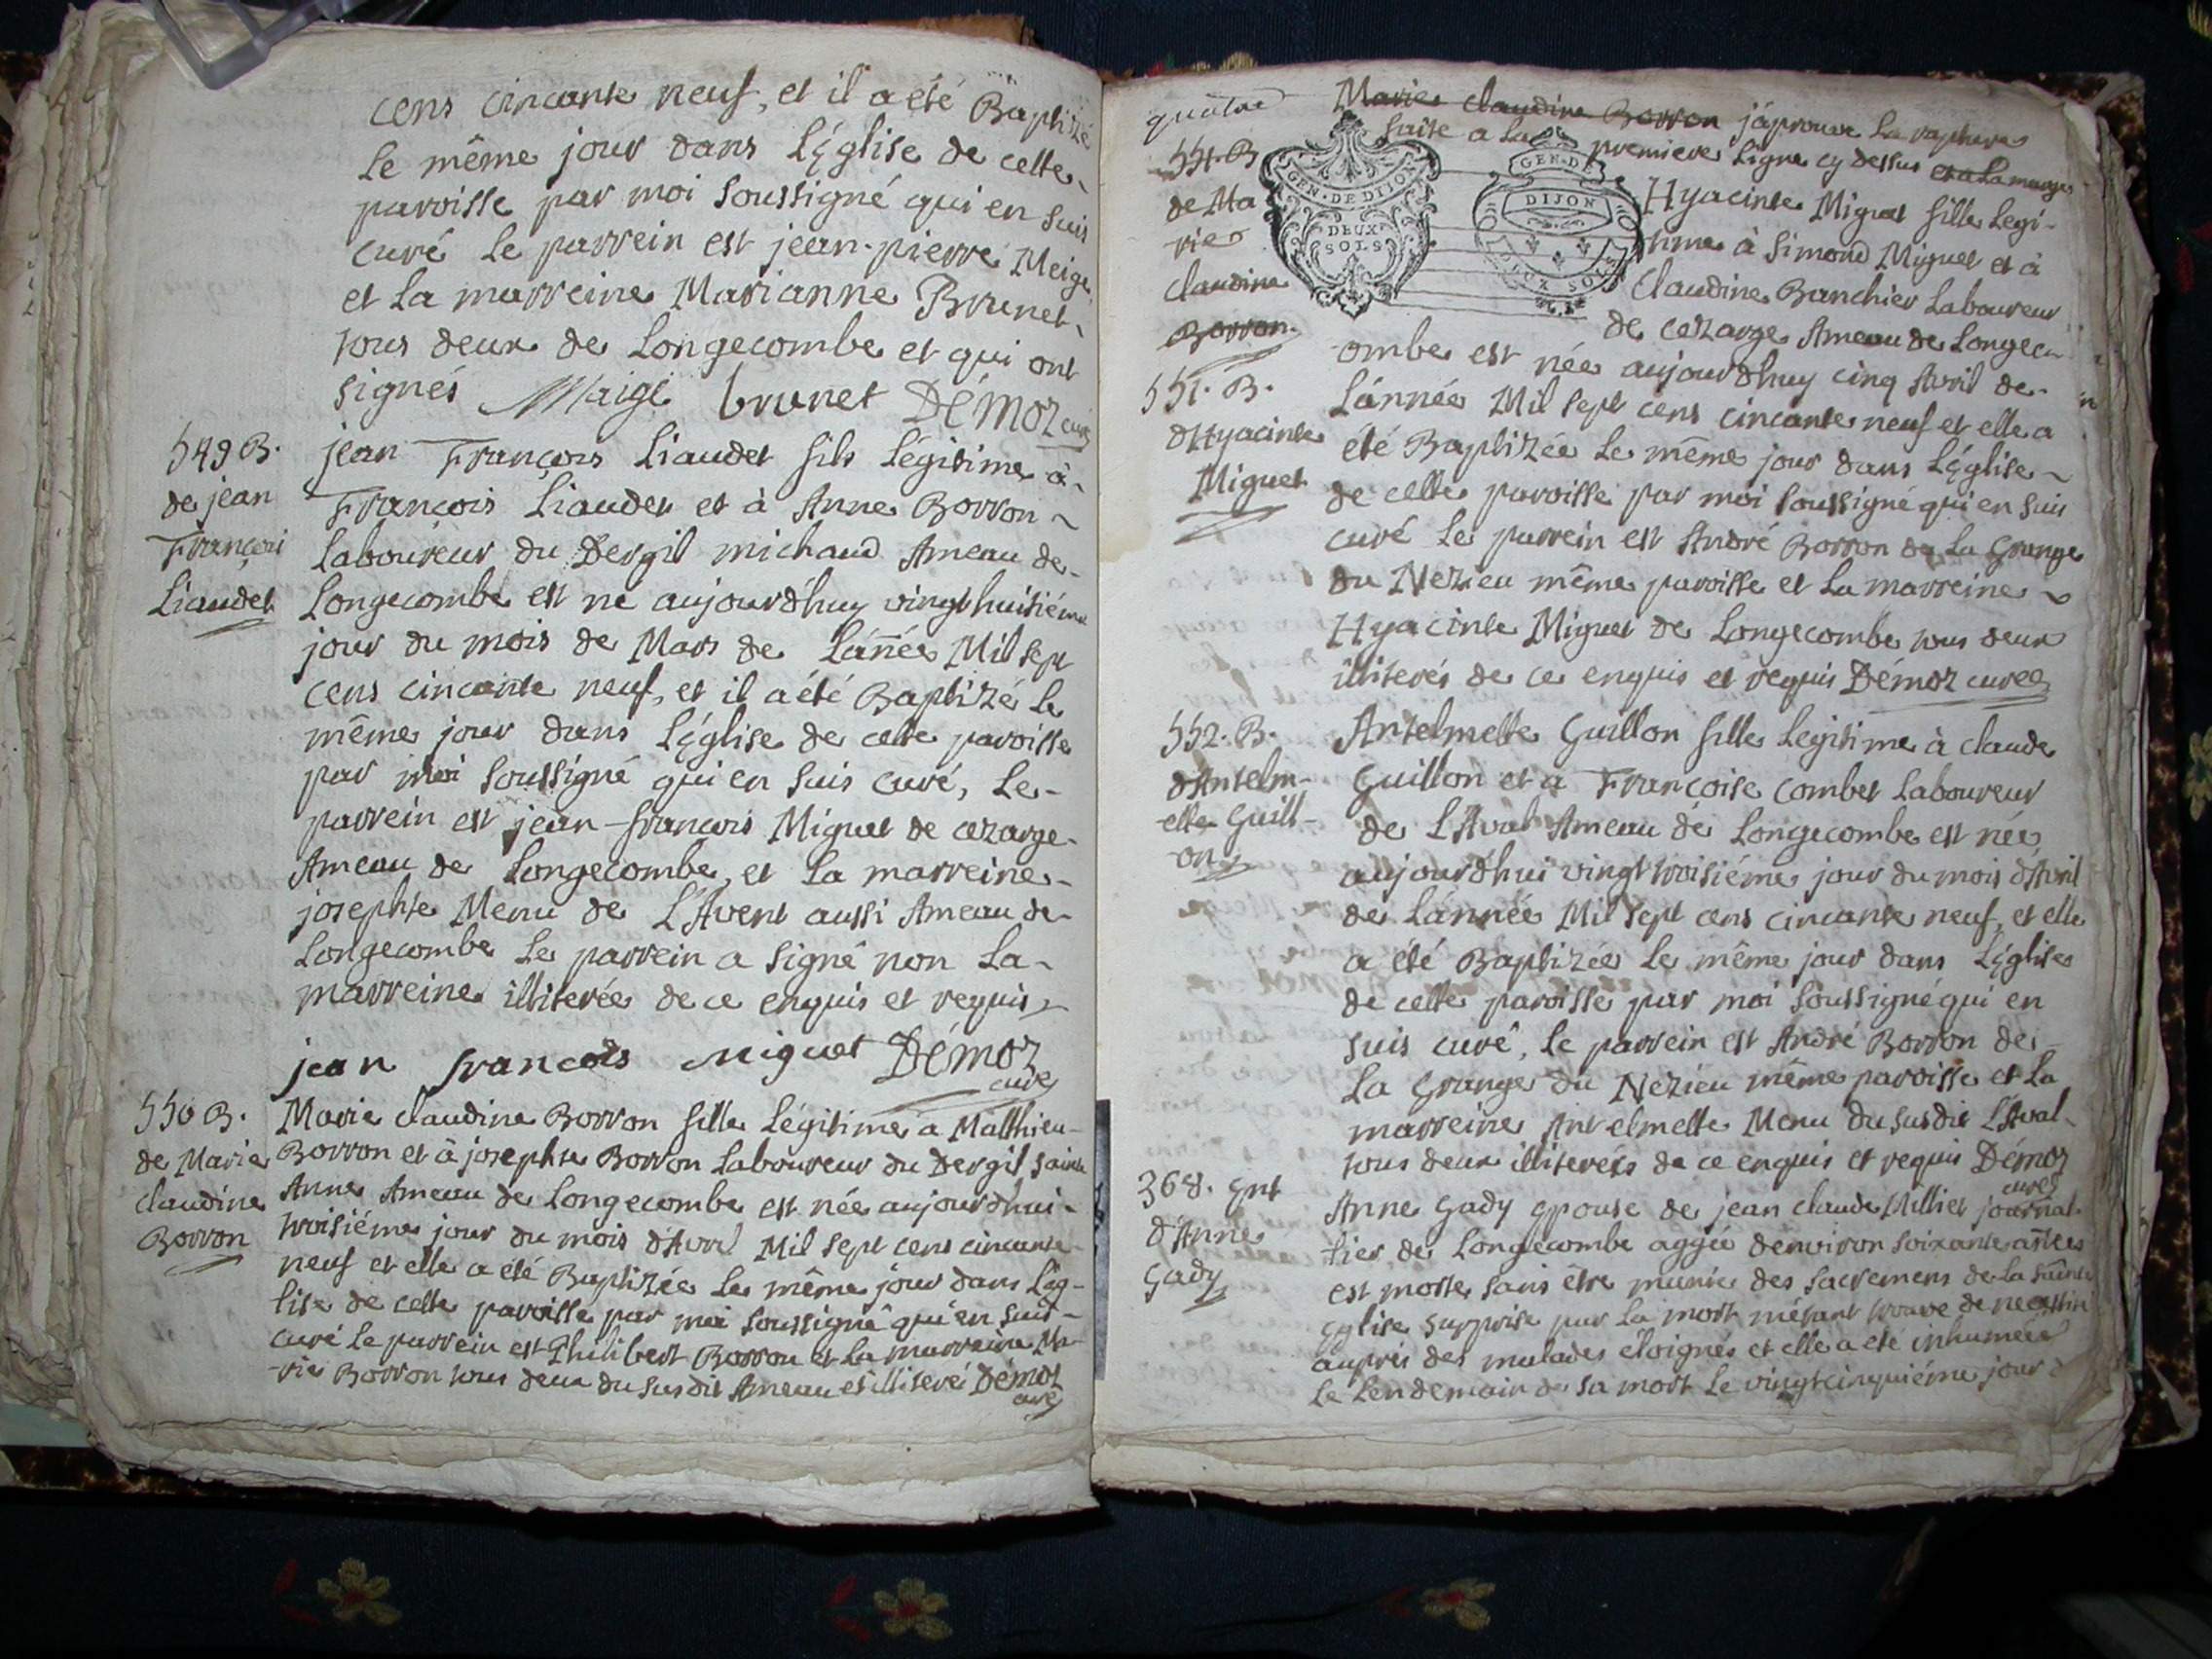 cens cincante neuf, et il a été Baptizé
Le même jour dans L'Église de cette
paroisse par moi soussigné qui en suis
curé Le parrein est jean-pierre Meige
et La marreine Marianne Brunet
tous deux de Longecombe et qui ont
signés Maige brunet Démoz curé
549 B.
de jean
François
Liaudet
jean François Liaudet fils Légitime à
François Liaudet et à Anne Borron
Laboureur du Dergil michaud Ameau de
Longecombe est né aujourd'huy vingthuitiéme
jour du mois de Mars de L'année Mil sept
cens cincante neuf, et il a été Baptizé Le
même jour dans L'Église de cette paroisse
par moi soussigné qui en suis curé, Le
parrein est jean-francois Miguet de cezarge
Ameau de Longecombe, et La marreine
josephte Menu de L'Avent aussi Ameau de
Longecombe Le parrein a signé non La
marreine illiterée de ce enquis et requis
jean francois miguet Démoz
curé
550 B.
de Marie
claudine
Borron
Marie claudine Borron fille Légitime à Matthieu
Borron et à josephte Borron Laboureur du Dergil sainte
Anne Ameau de Longecombe est née aujourd'hui
troisiéme jour du mois d'Avril Mil sept cens cincante
neuf et elle a été Baptizée Le même jour dans L'Ég-
lise de cette paroisse par moi soussigné qui en suis
curé Le parrein est Philibert Borron et La marreine Ma-
rie Borron tous deux du susdit Ameau et illiteré Démoz
curé
quatre
551. B
de Ma
rie
claudine
Borron
Marie claudine Borron j'aprouve La rapture
faite a La premiere Ligne cy dessus et a La marge
GEN. DE DIJON
DEUX
SOLS
GEN. DE
DIJON
DEUX SOLS
Hyacinte Miguet fille Legi-
time à Simond Miguet et à
Claudine Banchier Laboureur
de cezarge Ameau de Longec-
ombe est née aujourd'huy cinq Avril de
551. B.
d'Hyacinte
Miguet
L'année Mil sept cens cincante neuf et elle a
été Baptizée Le même jour dans L'Église
de cette paroisse par moi soussigné qui en suis
curé Le parrein est André Borron de La Grange
du Nezieu même paroisse et La marreine
Hyacinte Miguet de Longecombe tous deux
illiterés de ce enquis et requis Démoz curé
552. B.
d'Antelm-
ette Guill-
on
Antelmette Guillon fille Légitime à claude
Guillon et à Françoise combet Laboureur
de L'Aval Ameau de Longecombe est née
aujourd'hui vingt troisiéme jour du mois d'Avril
de L'année Mil sept cens cincante neuf, et elle
a été Baptizée Le même jour dans L'Église
de cette paroisse par moi soussigné qui en
suis curé, Le parrein est André Borron de
La Grange du Nezieu même paroisse et La
marreine Antelmette Menu du susdit L'Aval
tous deux illiterés de ce enquis et requis Démoz
curé
368. Ent
d'Anne
Gady
Anne Gady epouse de jean claude Millier journal-
lier de Longecombe aggée d'environ soixante années
est morte sans être munie des sacremens de La sainte
Eglise surprise par La mort m'étant trouvé de necessité
auprès des malades éloignés et elle a eté inhumée
Le Lendemain de sa mort Le vingtcinquiéme jour d